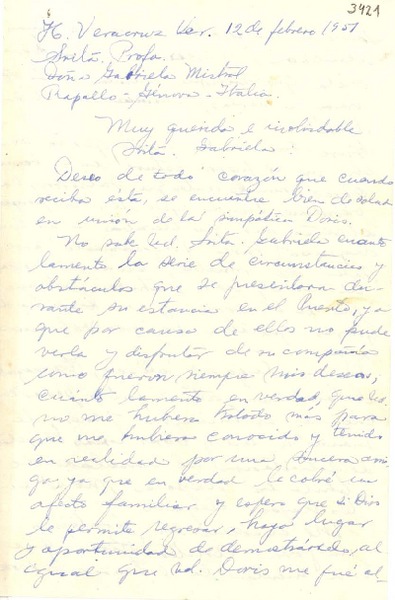 3421
H. Veracruz Ver. 12 de febrero 1951
Srita. Profa.
Doña Gabriela Mistral
Rapallo - Génova - Italia.
Muy querida e inolvidable
Srita. Gabriela:
Deseo de todo corazón que cuando
reciba ésta, se encuentre bien de salud
en unión de la simpática Doris.
No sabe Ud. Srta. Gabriela cuanto
lamento la serie de circunstancias y
obstáculos que se presentaron du-
rante su estancia en el Puerto, ya
que por causa de ellos no pude
verla y disfrutar de su compañía
como fueron siempre mis deseos;
cuánto lamento en verdad, que Ud.
no me hubiera tratado más para
que me hubiera conocido y tenido
en realidad por una sincera ami-
ga, ya que en verdad le cobré un
afecto familiar y espero que si Dios
le permite regresar, haya lugar
y oportunidad de demostrárselo, al
igual que Ud. Doris me fué al-